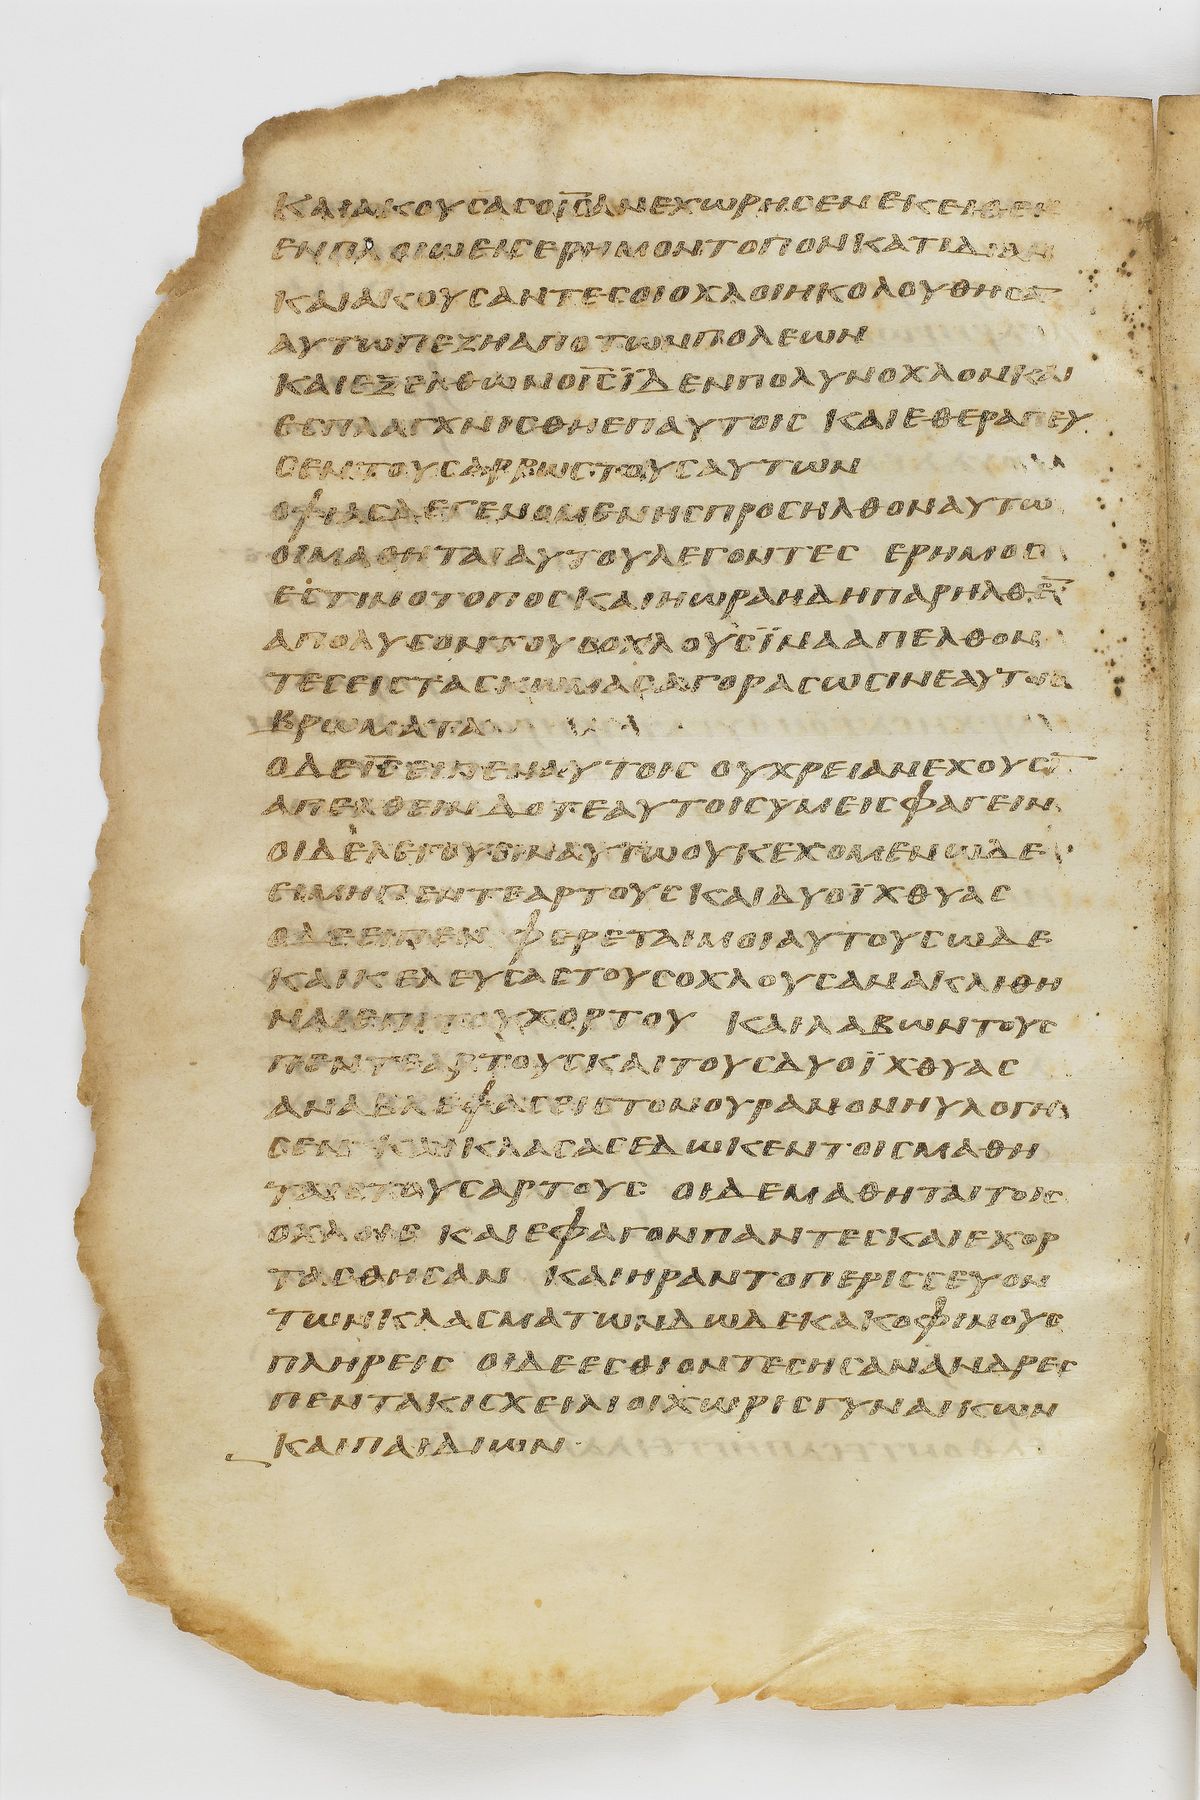 ΚΑΙΑΚΟΥϹΑϹΟΙ̅Ϲ̅ΑΝΕΧΩΡΗϹΕΝΕΚΕΙΘΕΝ
ΕΝΠΛΟΙΩΕΙϹΕΡΗΜΟΝΤΟΠΟΝΚΑΤΙΔΙΑΝ
ΚΑΙΑΚΟΥϹΑΝΤΕϹΟΙΟΧΛΟΙΗΚΟΛΟΥΘΗϹΑ̅
ΑΥΤΩΠΕΖΗΑΠΟΤΩΝΠΟΛΕΩΝ
ΚΑΙΕΞΕΛΘΩΝΟΙ̅Ϲ̅ΙΔΕΝΠΟΛΥΝΟΧΛΟΝΚΑΙ
ΕϹΠΛΑΓΧΝΙϹΘΗΕΠΑΥΤΟΙϹ ΚΑΙΕΘΕΡΑΠΕΥ
ϹΕΝΤΟΥϹΑΡΡΩϹΤΟΥϹΑΥΤΩΝ
ΟΨΙΑϹΔΕΓΕΝΟΜΕΝΗϹΠΡΟϹΗΛΘΟΝΑΥΤΩ
ΟΙΜΑΘΗΤΑΙΑΥΤΟΥΛΕΓΟΝΤΕϹ ΕΡΗΜΟϹ
ΕϹΤΙΝΟΤΟΠΟϹΚΑΙΗΩΡΑΗΔΗΠΑΡΗΛΘΕ̅
ΑΠΟΛΥϹΟΝΤΟΥϹΟΧΛΟΥϹΪΝΑΑΠΕΛΘΟΝ
ΤΕϹΕΙϹΤΑϹΚΩΜΑϹΑΓΟΡΑϹΩϹΙΝΕΑΥΤΟΙϹ
ΒΡΩΜΑΤΑ
ΟΔΕΙ̅Ϲ̅ΕΙΠΕΝΑΥΤΟΙϹ ΟΥΧΡΕΙΑΝΕΧΟΥϹΙ̅
ΑΠΕΛΘΕΙΝΔΟΤΕΑΥΤΟΙϹΥΜΕΙϹΦΑΓΕΙΝ
ΟΙΔΕΛΕΓΟΥϹΙΝΑΥΤΩΟΥΚΕΧΟΜΕΝΩΔΕ
ΕΙΜΗΠΕΝΤΕΑΡΤΟΥϹΚΑΙΔΥΟΪΧΘΥΑϹ
ΟΔΕΕΙΠΕΝ ΦΕΡΕΤΑΙΜΟΙΑΥΤΟΥϹΩΔΕ
ΚΑΙΚΕΛΕΥϹΑϹΤΟΥϹΟΧΛΟΥϹΑΝΑΚΛΙΘΗ
ΝΑΙΕΠΙΤΟΥΧΟΡΤΟΥ ΚΑΙΛΑΒΩΝΤΟΥϹ
ΠΕΝΤΕΑΡΤΟΥϹΚΑΙΤΟΥϹΔΥΟΪΧΘΥΑϹ
ΑΝΑΒΛΕΨΑϹΕΙϹΤΟΝΟΥΡΑΝΟΝΗΥΛΟΓΗ
ϹΕΝ ΚΑΙΚΛΑϹΑϹΕΔΩΚΕΝΤΟΙϹΜΑΘΗ
ΤΑΙϹΤΟΥϹΑΡΤΟΥϹ ΟΙΔΕΜΑΘΗΤΑΙΤΟΙϹ
ΟΧΛΟΙϹ ΚΑΙΕΦΑΓΟΝΠΑΝΤΕϹΚΑΙΕΧΟΡ
ΤΑϹΘΗϹΑΝ ΚΑΙΗΡΑΝΤΟΠΕΡΙϹϹΕΥΟΝ
ΤΩΝΚΛΑϹΜΑΤΩΝΔΩΔΕΚΑΚΟΦΙΝΟΥϹ
ΠΛΗΡΕΙϹ ΟΙΔΕΕϹΘΙΟΝΤΕϹΗϹΑΝΑΝΔΡΕϹ
ΠΕΝΤΑΚΙϹΧΕΙΛΙΟΙΧΩΡΙϹΓΥΝΑΙΚΩΝ
ΚΑΙΠΑΙΔΙΩΝ